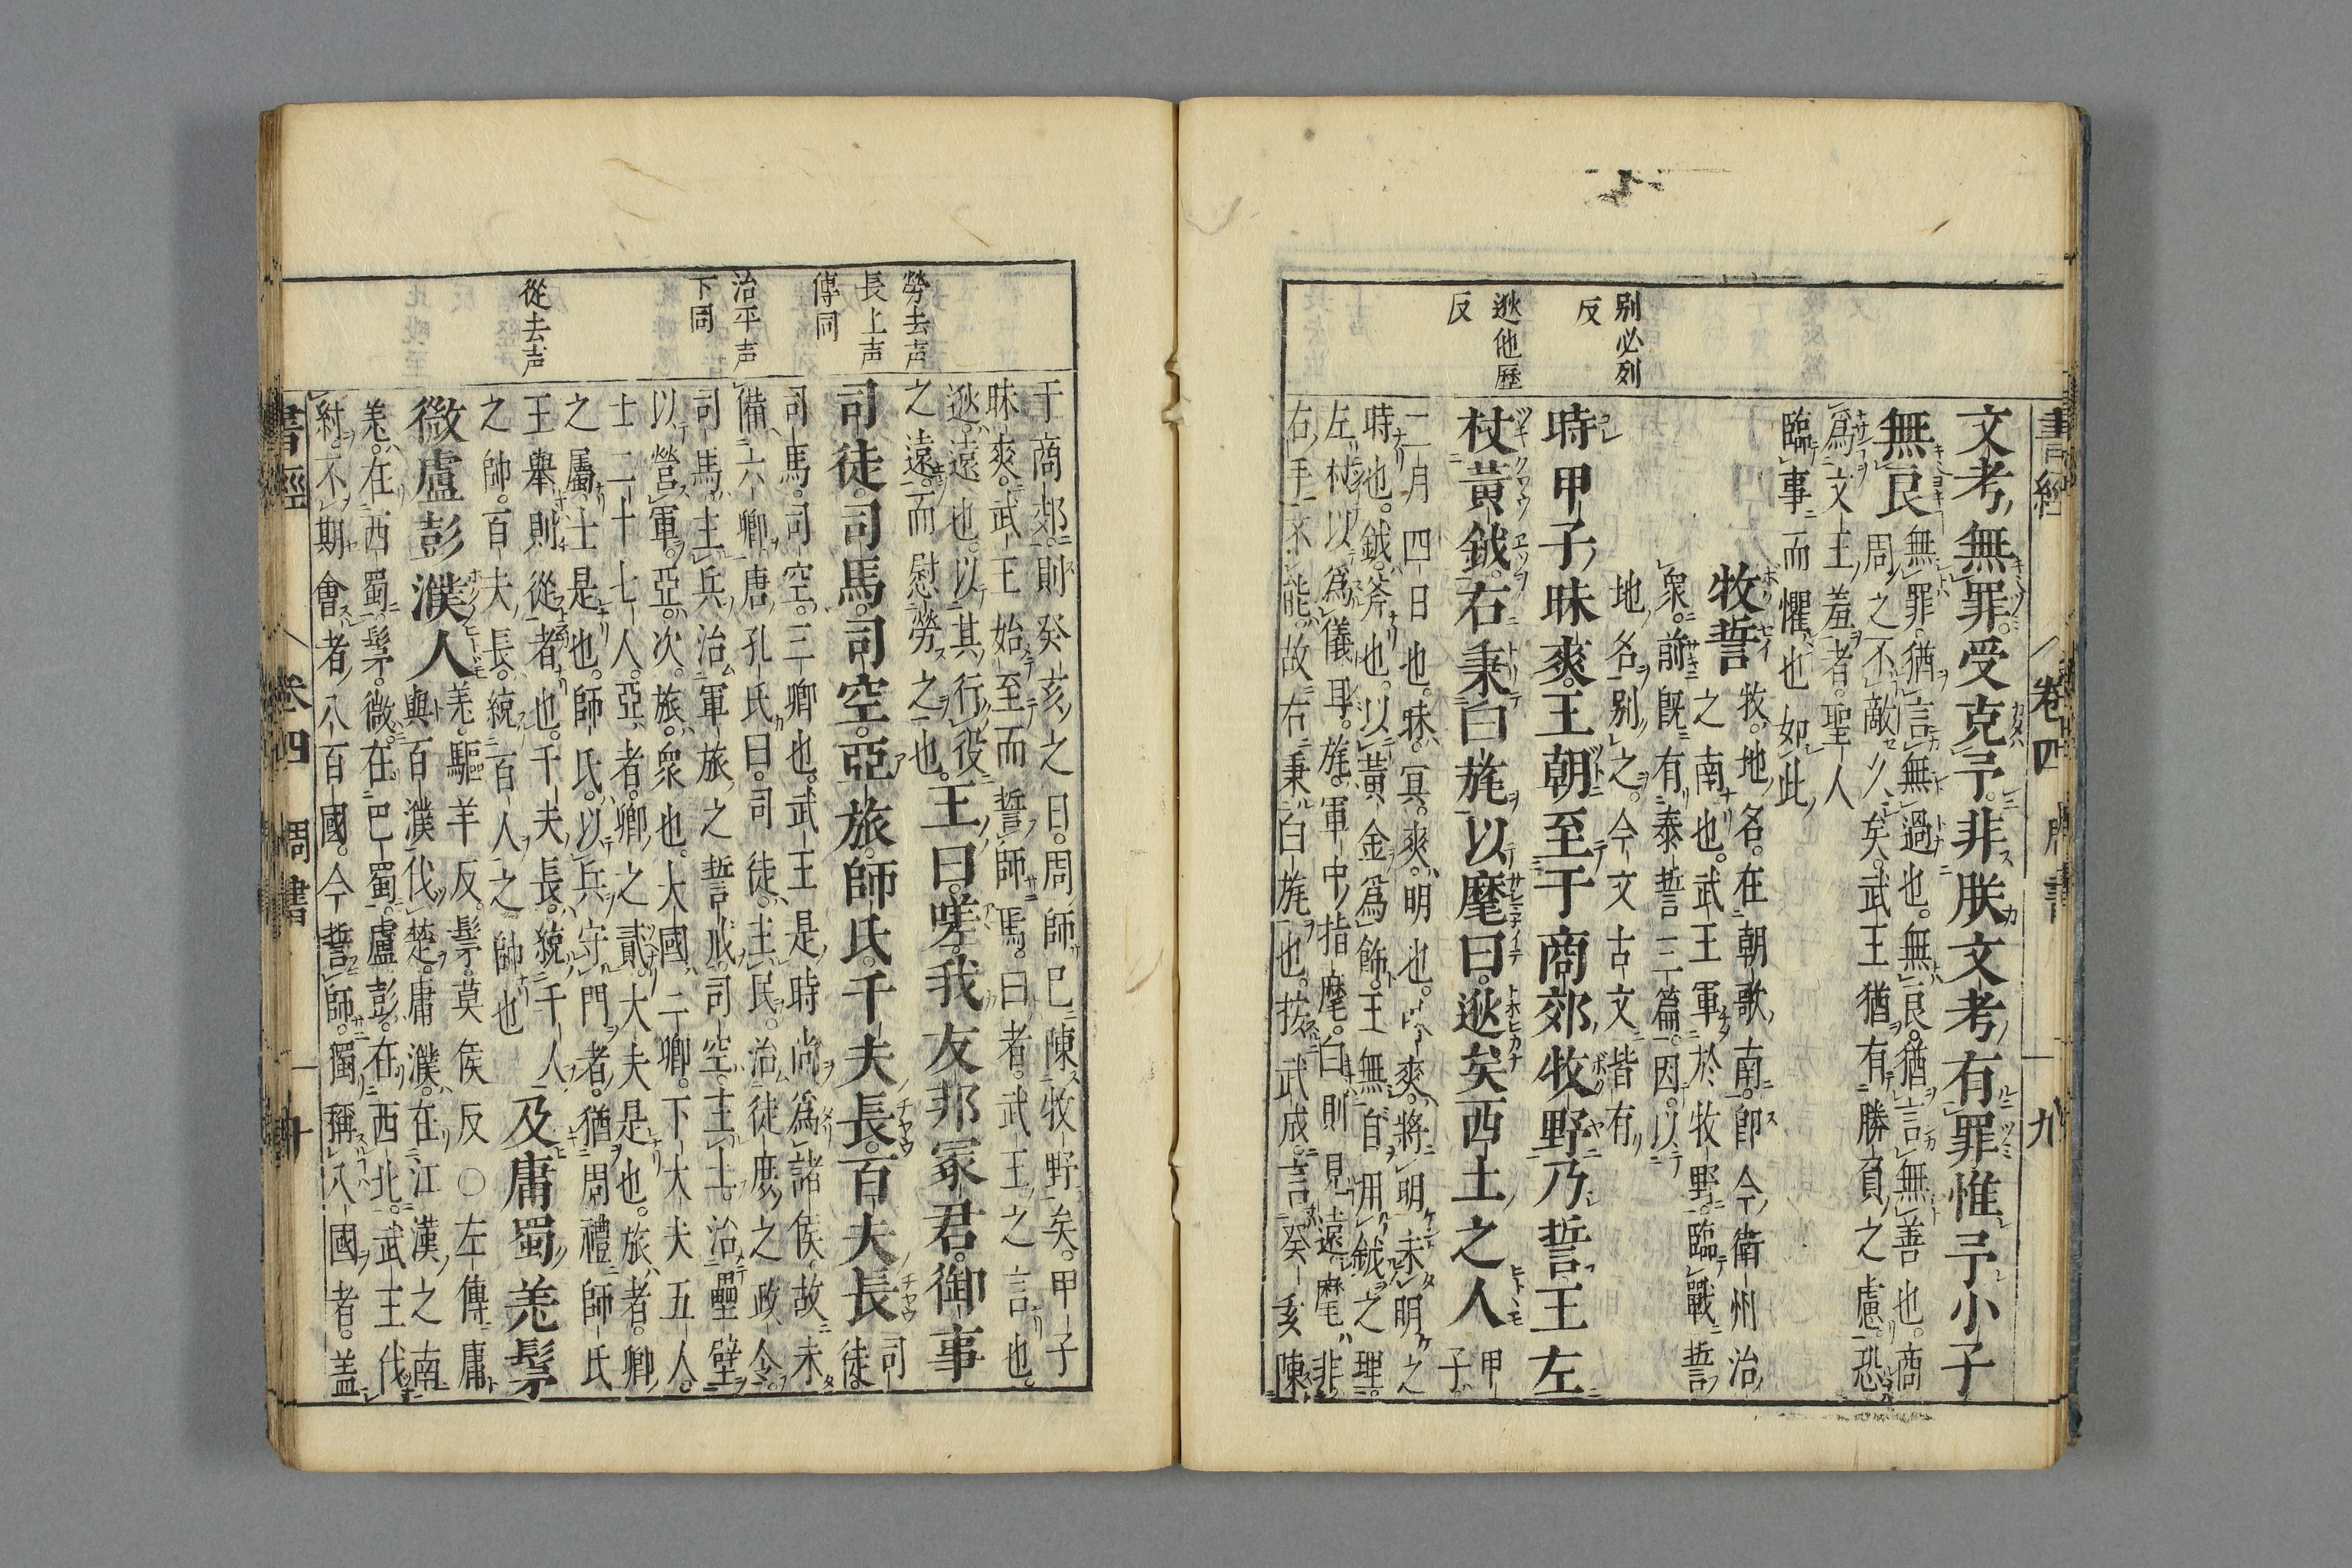 書經
卷四
周書
九
別必列
反
逖他歷
反
文考無罪。受克予。非朕文考有罪惟予小子
無良
無罪。猶言無過也。無良。猶言無善也。商
周之不敵久矣。武王猶有勝負之慮。恐
爲文王羞者。聖人
臨事而懼也如此
牧誓
牧。地名。在朝歌南。卽今衛州治
之南也。武王軍於牧野。臨戰誓
衆。前旣有泰誓三篇。因以
地名別之。今文古文皆有
時甲子昧爽。王朝至于商郊牧野乃誓王左
杖黃鉞。右秉白旄以麾曰。逖矣西土之人
甲
子。
二月四日也。昧。冥。爽。明也。昧爽。將明未明之
時也。鉞。斧也。以黃金爲飾。王無自用鉞之理。
左杖以爲儀耳。旄。軍中指麾。白則見遠。麾非
右手不能。故右秉白旄也。按武成。言癸亥陳
勞去声
長上声
傳同
治平声
下同
從去声
于商郊。則癸亥之日。周師已陳牧野矣。甲子
昧爽。武王始至而誓師焉。曰者。武王之言也。
逖。遠也。以其行役
之遠。而慰勞之也。
王曰。嗟。我友邦冢君。御事
司徒。司馬。司空。亞旅。師氏。千夫長。百夫長
司
徒。
司馬。司空。三卿也。武王是時尚爲諸侯。故未
備六卿。唐孔氏曰。司徒。主民。治徒庶之政令。
司馬。主兵。治軍旅之誓戒。司空。主土。治壘壁
以營軍。亞。次。旅。衆也。大國三卿。下大夫五人。
士二十七人。亞者。卿之貳。大夫是也。旅者。卿
之屬。士是也。師氏。以兵守門者。猶周禮師氏
王舉則從者也。千夫長。統千人
之帥。百夫長。統百人之帥也
及庸蜀羌髳
微盧彭濮人
羌。驅羊反。髳。莫侯反○左傳庸
與百濮伐楚。庸濮。在江漢之南
羌。在西蜀。髳。微。在巴蜀。盧彭。在西北。武王伐
紂。不期會者。八百國。今誓師。獨稱八國者。蓋
書經
卷四
周書
十